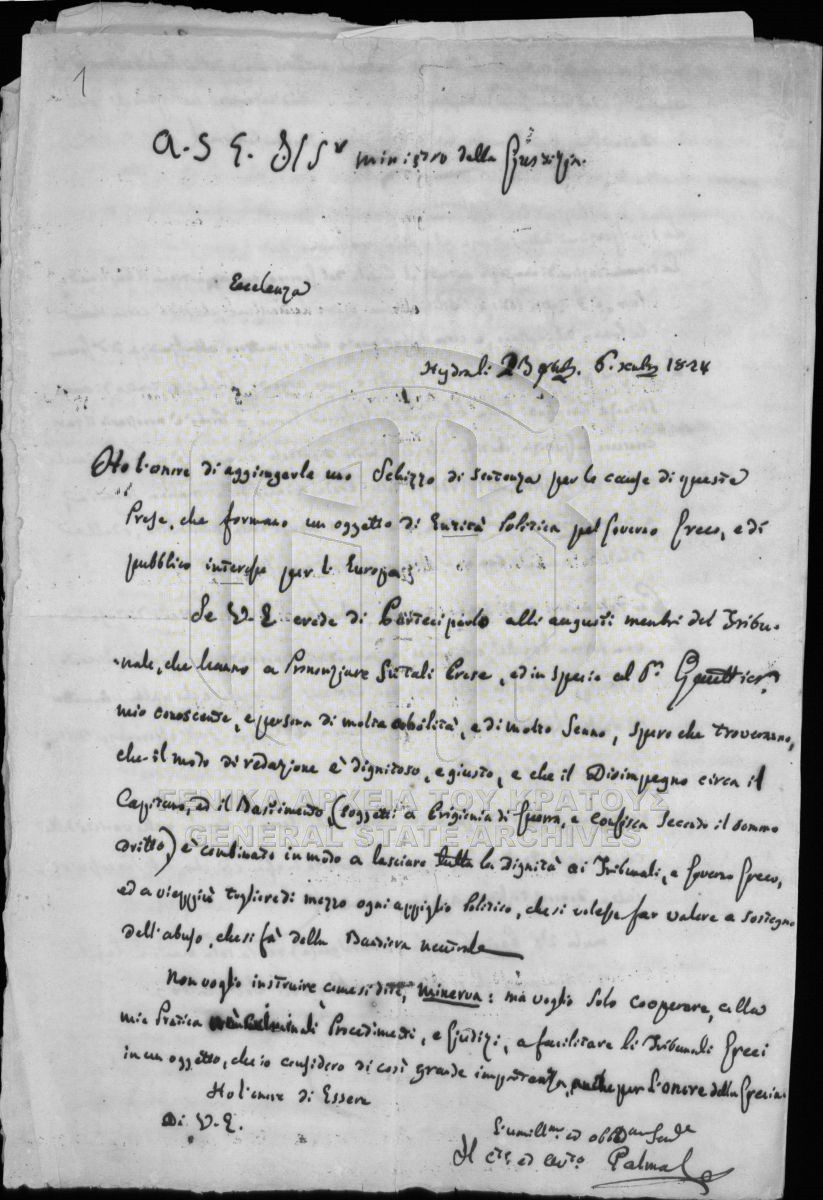 1
A. S E. Il S.r ministro della Giustizia.
Eccelenza
Hydra li 6. 1824
Ho l'onore di aggiongerle uno Schizzo di sentenza per le cause di queste
Prese, che formano un oggetto di Entità Politica pel Governo Greco, e di
pubblico interesse per l' Europa
Se V. E crede di Parteciparlo alli augusti membri del Tribu-
nale, che hanno a Pronunziare su tali Prese, ed in specie al S.r
mio conoscente, e persona di molta abilità, e di molto Senno, spero che troveranno,
che il modo di redazione è dignitoso, e giusto, e che il Disimpegno circa il
Capitano, ed il Bastimento, (soggetti a Prigionia di Guerra, e confisca secondo il sommo
dritto) è combinato in modo a lasciare tutta la dignità ai Tribunali, e Governo Greco,
ed a vieppiù togliere di mezzo ogni appiglio Politico, che si volesse far valere a sostegno
dell'abuso, che si fà della Bandiera neutrale
Non voglio instruire come si dite, Minerva: mà voglio solo cooperare, colla
mia Pratica Procedimenti, e Giudizi, a facilitare li Tribunali Greci
in un oggetto, che io considero di così grande importanza, anche per l'onore della Grecia.
Ho l'onore di Essere
Di V. E.
L'umill.mo ed obb.
Il Palma
ΓΕΝΙΚΑ ΑΡΧΕΙΑ ΤΟΥ ΚΡΑΤΟΥΣ
GENERAL STATE ARCHIVES